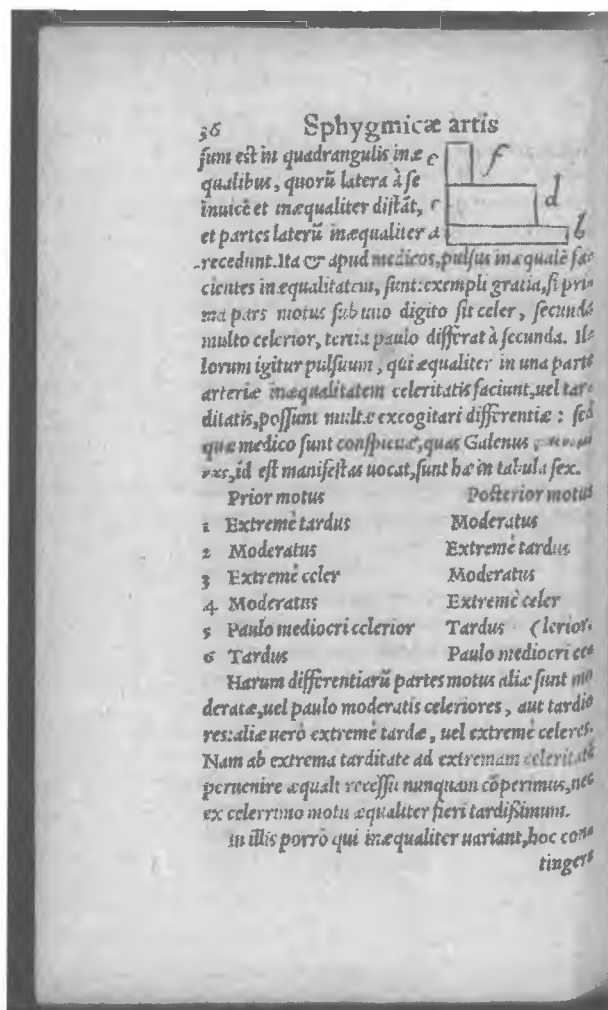 36 Sphygmicæ artis
sum est in quadrangulis inæ e f
qualibus, quorũ latera à se
inuicẽ et inæqualiter distãt, c d
et partes laterũ inæqualiter a b
recedunt. Ita & apud medicos, pulsus inæqualẽ fa⸗
cientes inæqualitatem, sunt: exempli gratia, si pri⸗
ma pars motus sub uno digito sit celer, secunda
multo celerior, tertia paulo differat à secunda. Il⸗
lorum igitur pulsuum, qui æqualiter in una parte
arteriæ inæqualitatem celeritatis faciunt, uel tar⸗
ditatis, possunt multæ excogitari differentiæ: sed
quæ medico sunt conspicuæ, quas Galenus
id est manifestas uocat, sunt hæ in tabula sex.
Prior motus Posterior motus
1 Extremè tardus Moderatus
2 Moderatus Extremè tardus
3 Extremè celer Moderatus
4 Moderatus Extremè celer
5 Paulo mediocri celerior Tardus (lerior.
6 Tardus Paulo mediocri ce⸗
Harum differentiarũ partes motus aliæ sunt mo
deratæ, uel paulo moderatis celeriores, aut tardio
res: aliæ uerò extremè tardæ, uel extremè celeres.
Nam ab extrema tarditate ad extremam celeritatẽ
peruenire æquali recessu nunquam cõperimus, nec
ex celerrimo motu æqualiter fieri tardißimum.
In illis porrò qui inæqualiter uariant, hoc con⸗
tingere